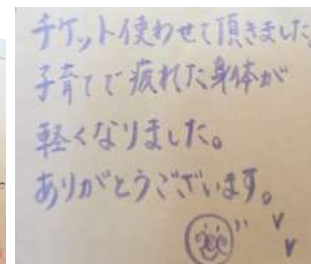 チケット使わせて頂きました。
子育てで疲れた身体が
軽くなりました。
ありがとうございます。